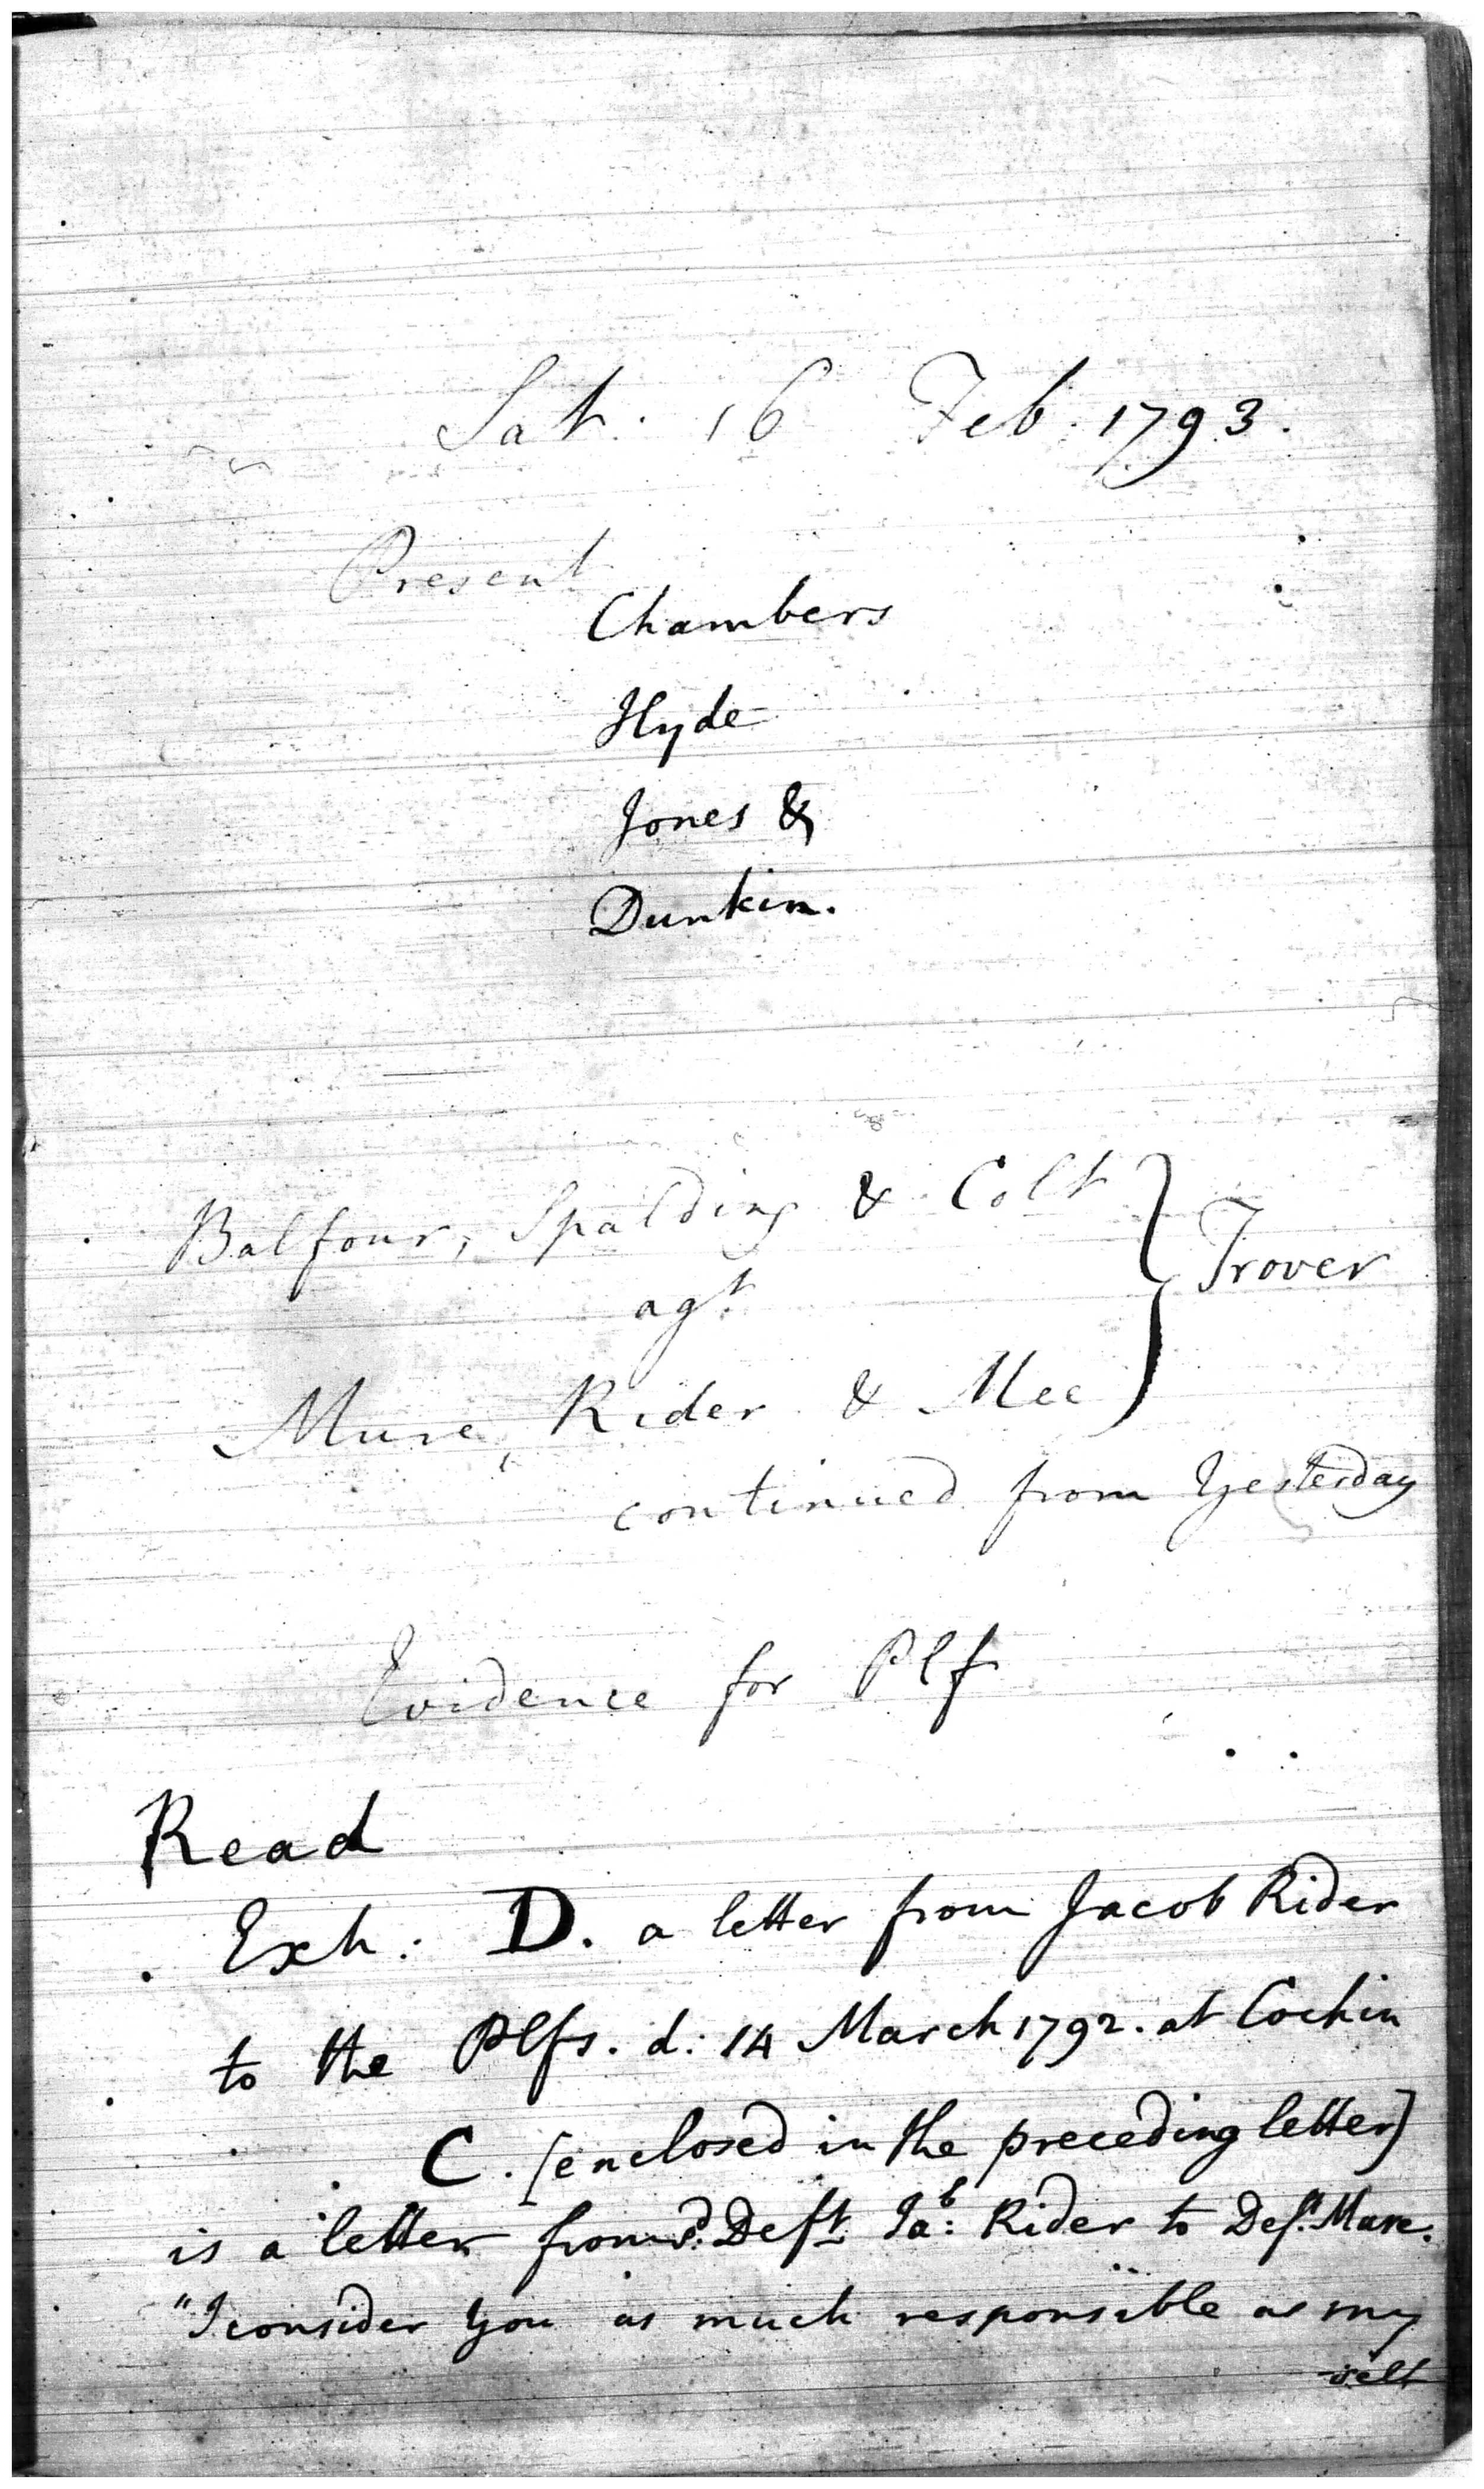 Sat. 16 Feb. 1793.
Present
Chambers
Hyde
Jones &
Dunkin.
Balfour, Spalding & Colt } Trover
agt.
Mure, Rider & Mee
continued from Yesterday
Evidence for Plf
Read
Exh: D. a letter from Jacob Rider
to the Plfs. d: 14 March 1792. at Cochin
C. [enclosed in the preceding letter]
is a letter from sd: Deft. Jab: Rider to Deft. Mure.
"I consider you as much responsible as my
-self